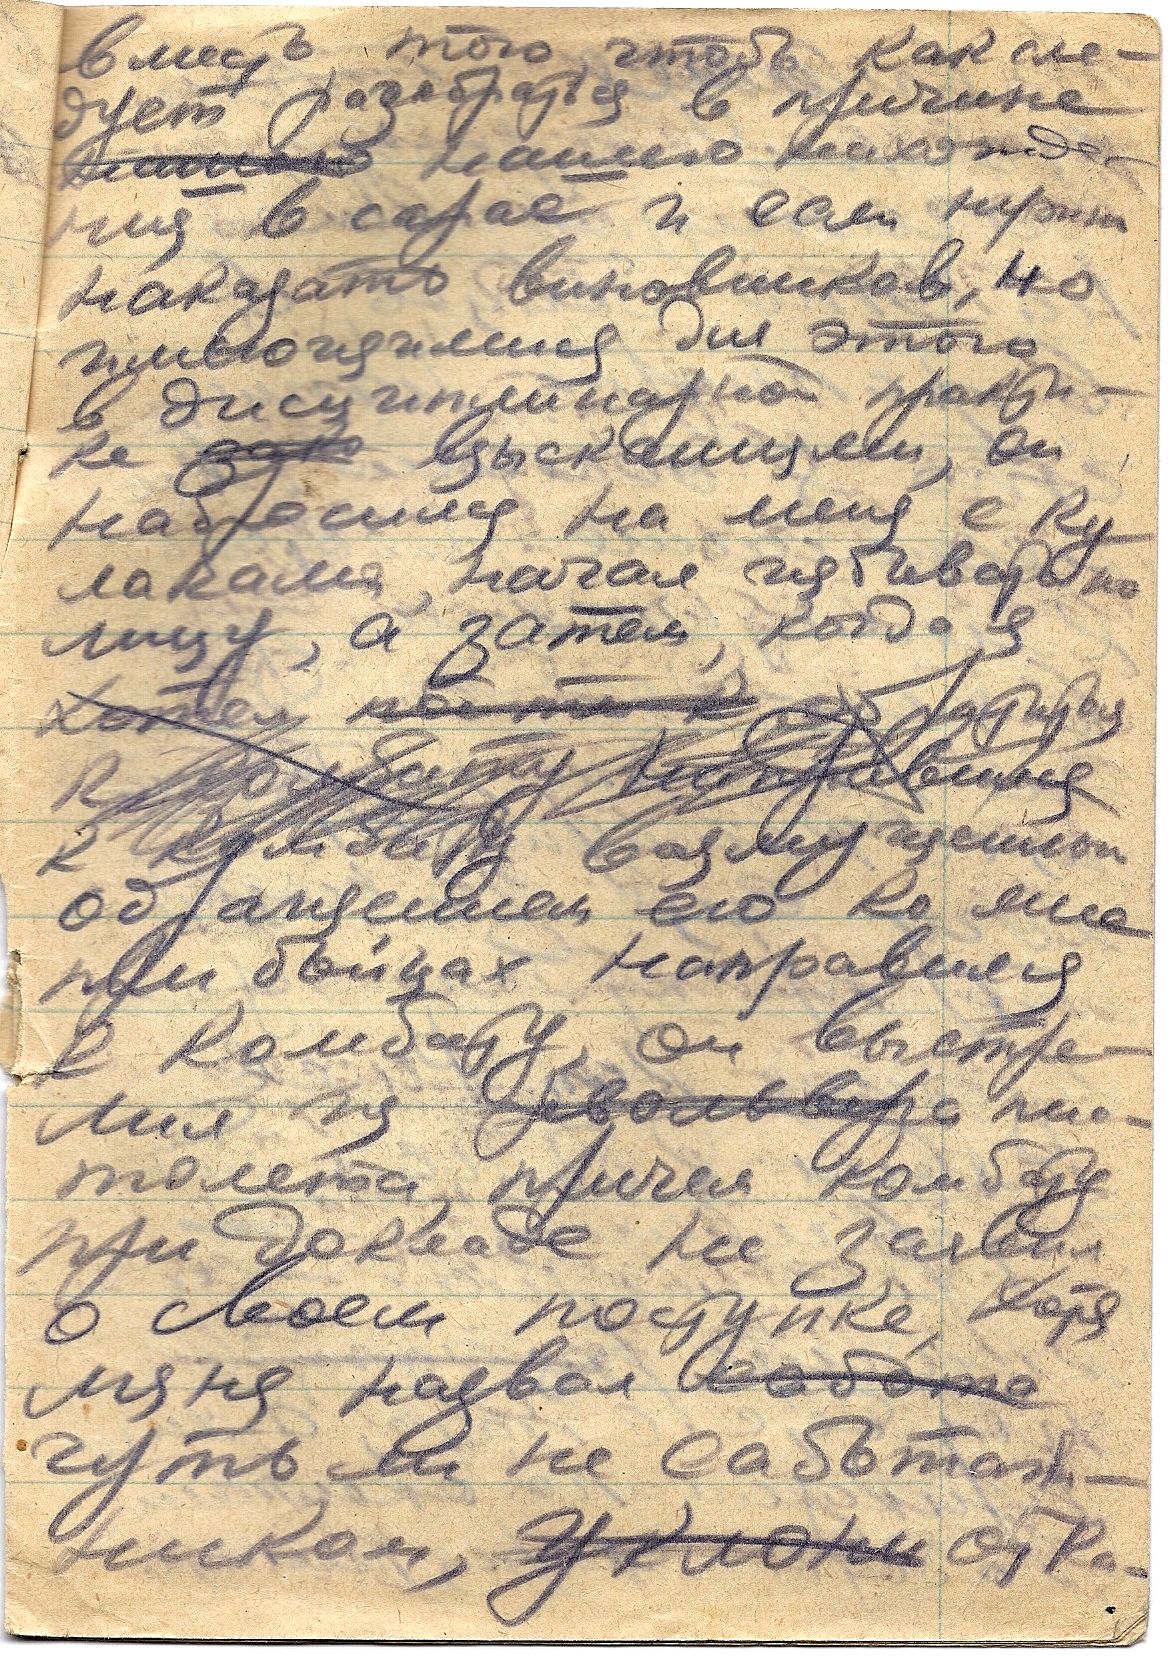 вместо того, чтобы как сле-
дует разобраться в причине
нашего нахожде-
ния в сарае и если нужно
наказать виновников, но
имеющимися для этого
в дисциплинарной практи-
ке взысканиями, он
набросился на меня с ку
лаками, начал избивать по
лицу, а затем, когда я
хотел пойти к обратиться
к комбату направился
к комбату возмущенный
обращением его ко мне
при бойцах направился
к комбату, он выстре-
лил из револьвера пис-
толета, причем комбату
при докладе не заявил
о своем поступке, хотя
меня назвал сабото
чуть ли не саботаж-
ником, уклони отка-